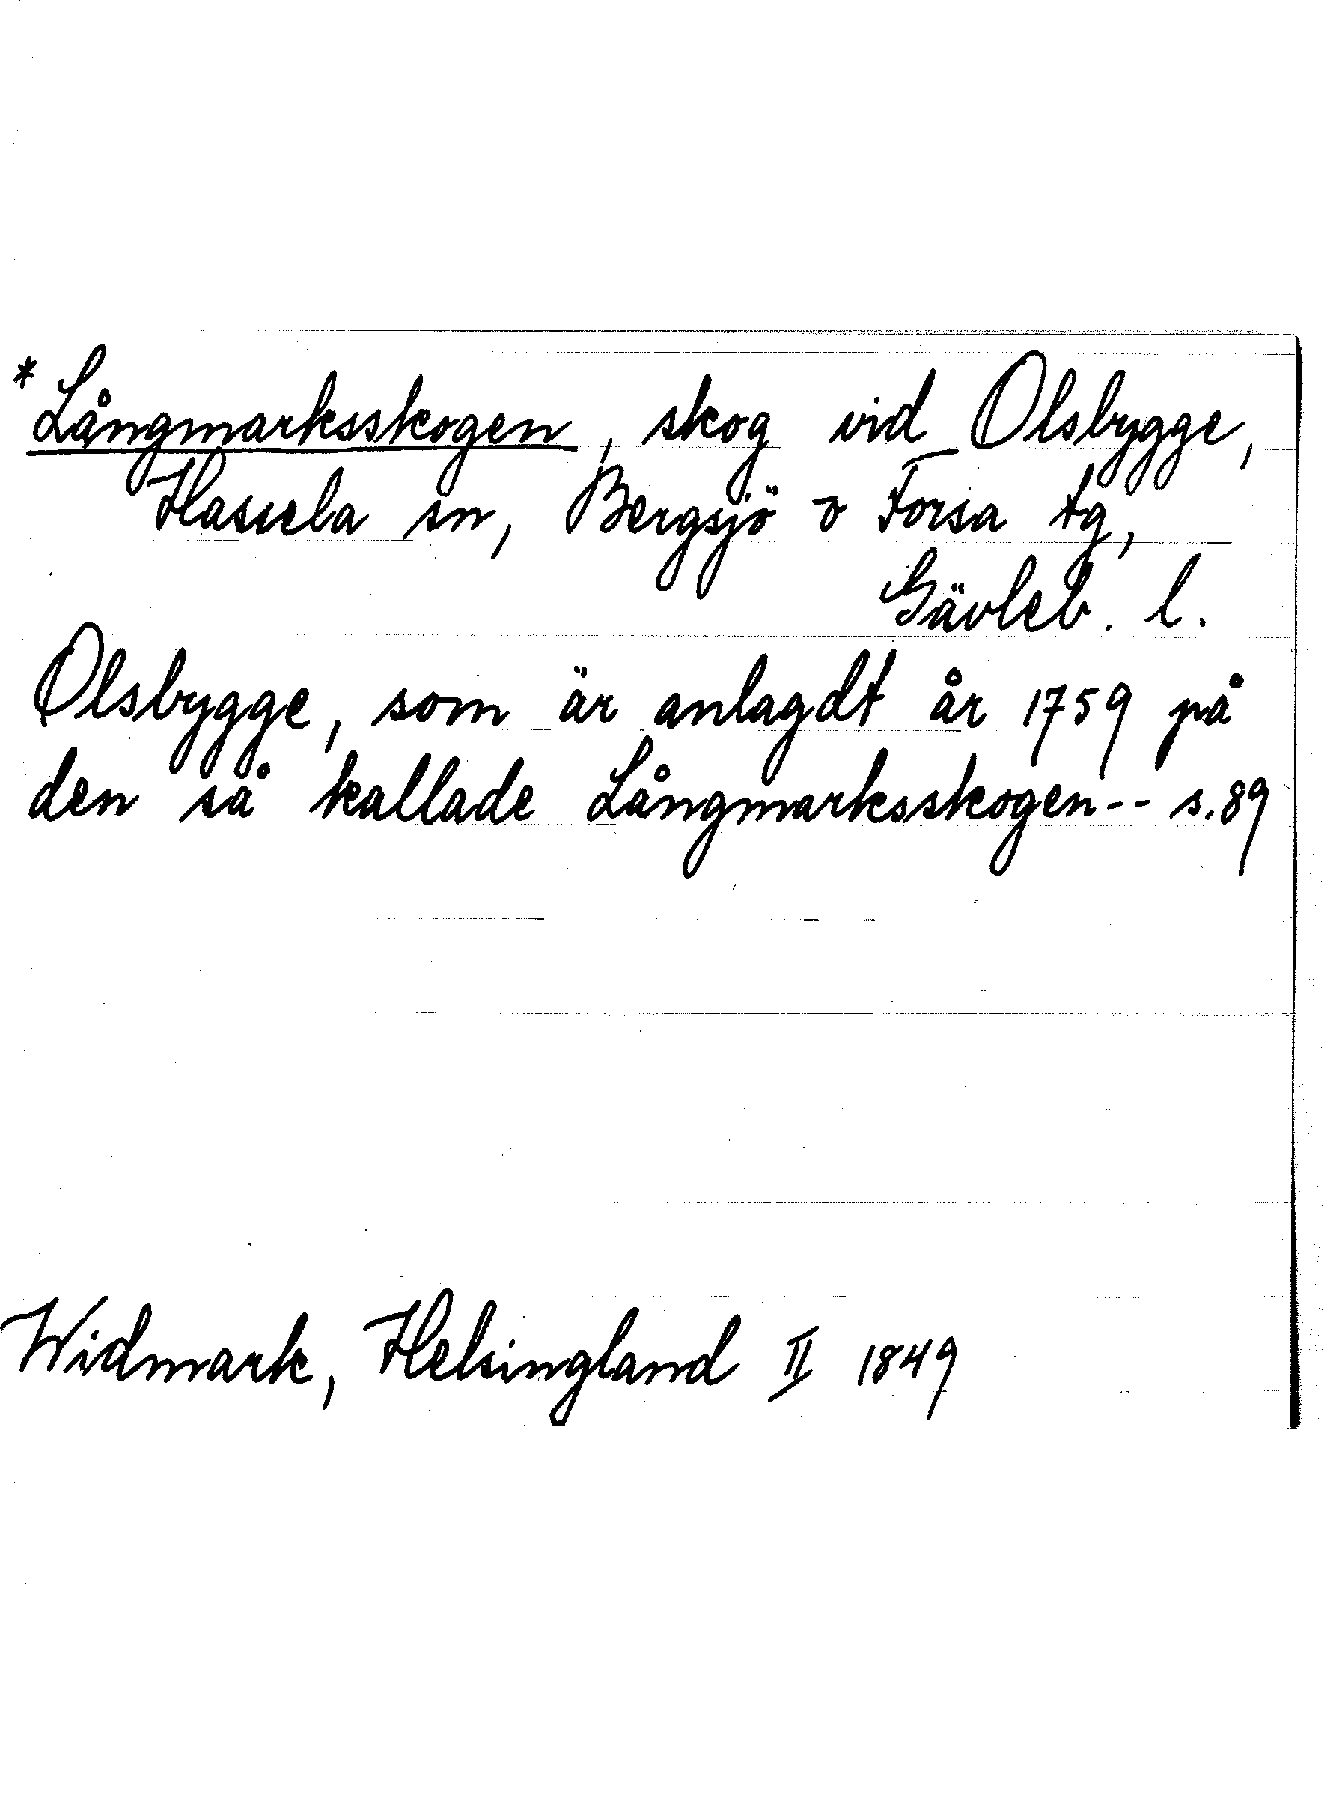 * Långmarksskogen, skog vid Olsbygge,
Hassela sn, Bergsjö o Forsa tg,
Gävleb. l.
Olsbygge, som är anlagdt år 1759 på
den så kallade Långmarksskogen-- s.89
Widmark, Helsingland II 1849